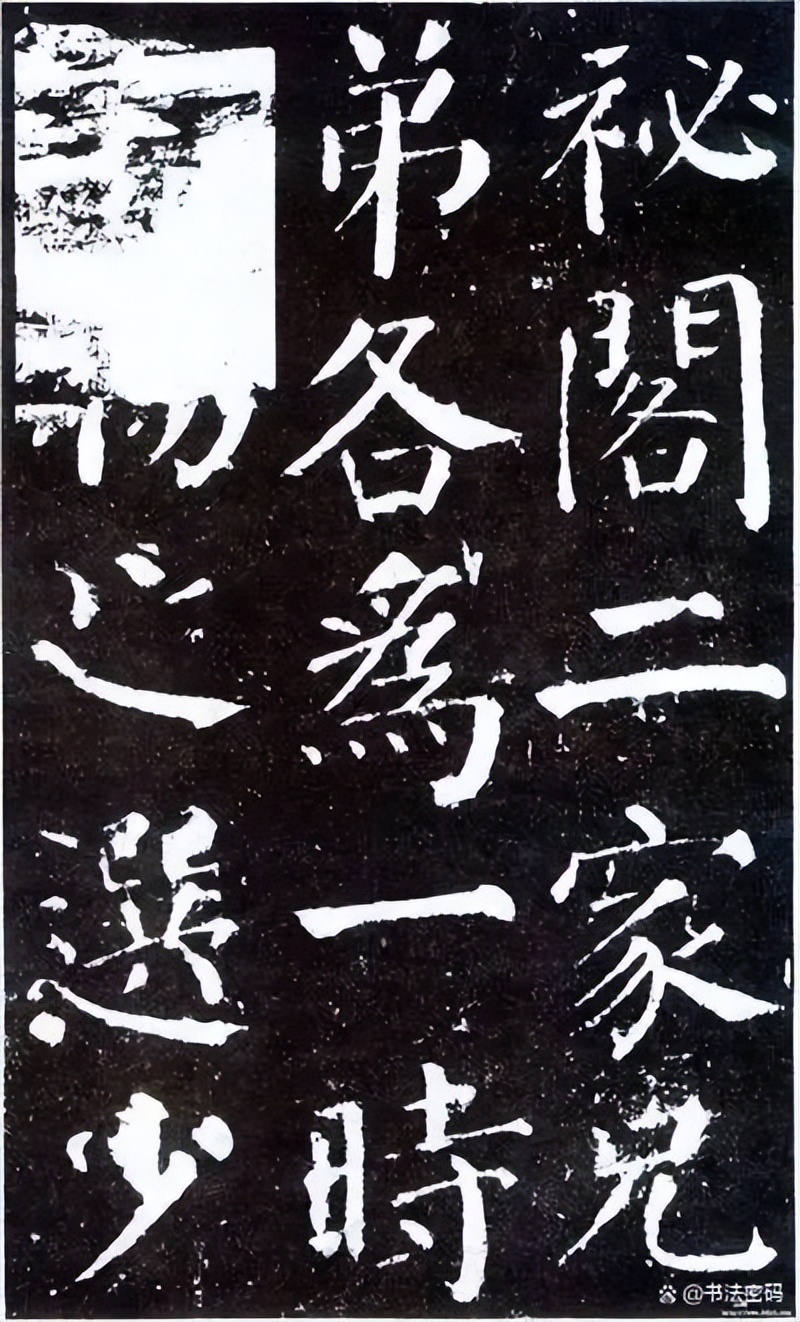 祕閣二家兄
弟各為一時
之選少
@书法密码